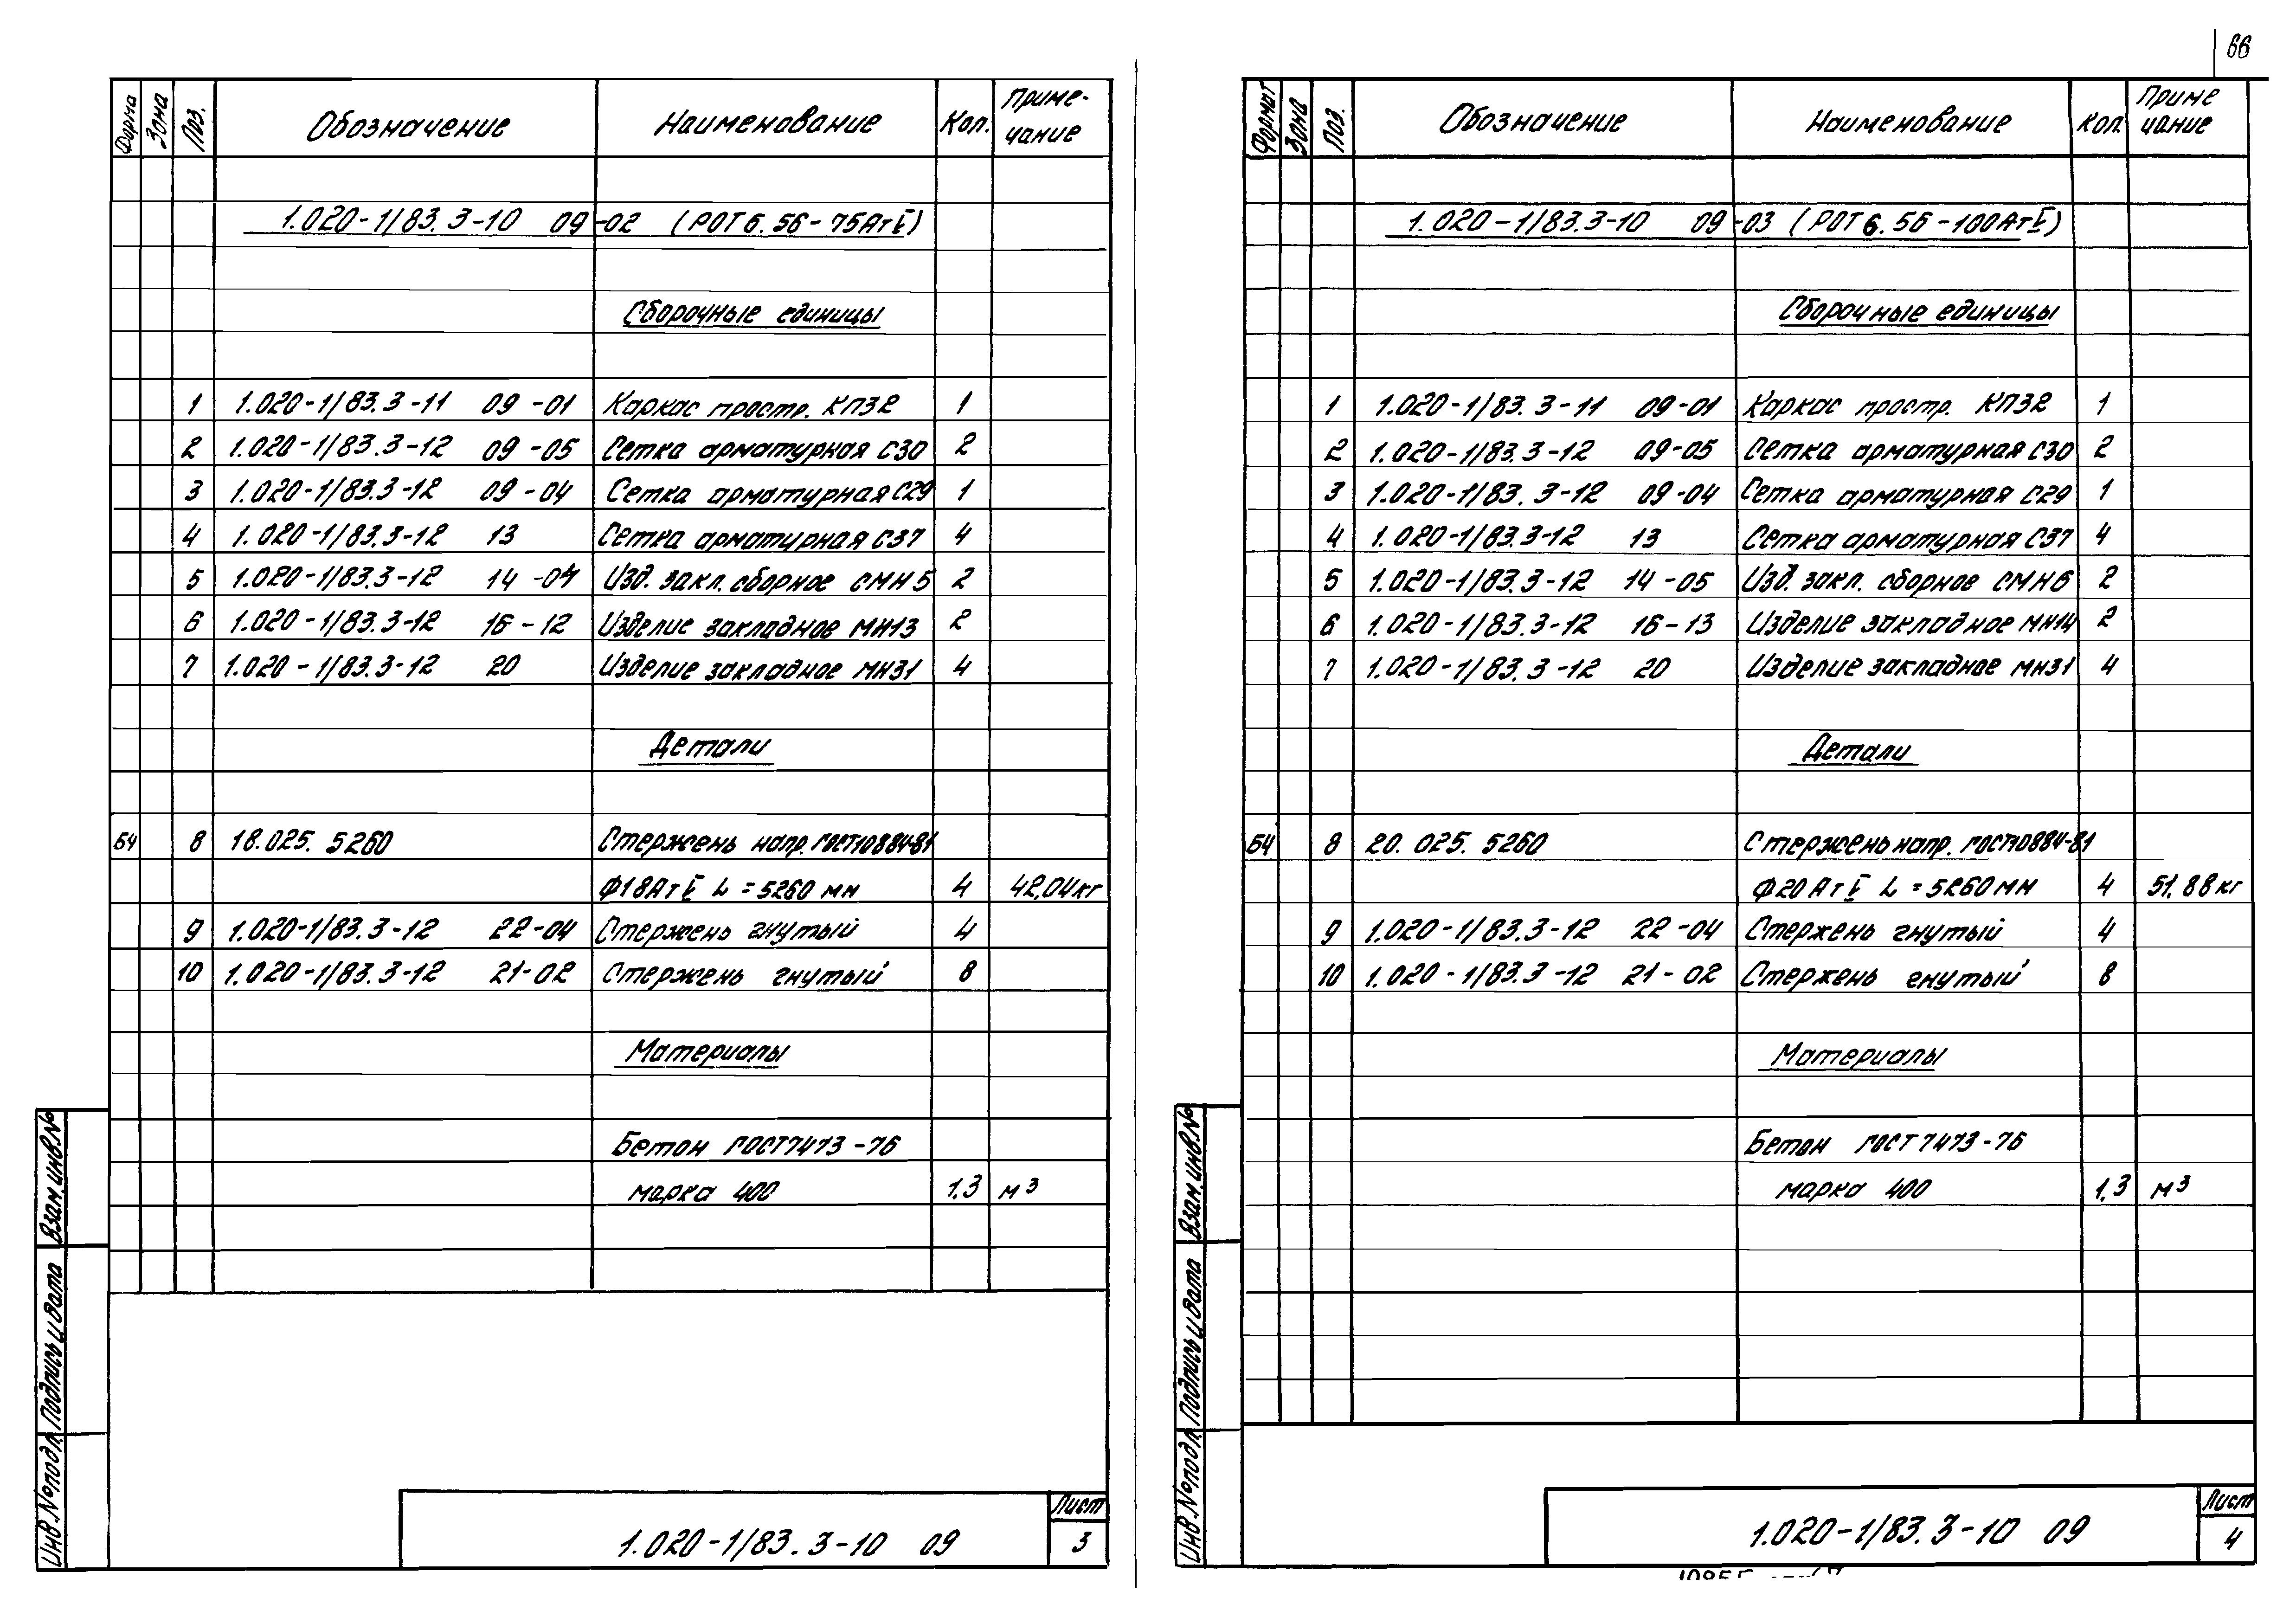 66
Форма Зона Поз. Обозначение Наименование Кол. Приме-
чание
1.020-1/83.3-10 09-02 (РОТ6.56-75АтV)
Сборочные единицы
1 1.020-1/83.3-11 09-01 Каркас простр. КП32 1
2 1.020-1/83.3-12 09-05 Сетка арматурная С30 2
3 1.020-1/83.3-12 09-04 Сетка арматурная С29 1
4 1.020-1/83.3-12 13 Сетка арматурная С37 4
5 1.020-1/83.3-12 14-04 Изд. закл. сборное СМН5 2
6 1.020-1/83.3-12 16-12 Изделие закладное МН13 2
7 1.020-1/83.3-12 20 Изделие закладное МН31 4
Детали
БЧ 8 18.025.5260 Стержень напр. ГОСТ10884-81
Ф18АтV L=5260 мм 4 42,04кг
9 1.020-1/83.3-12 22-04 Стержень гнутый 4
10 1.020-1/83.3-12 21-02 Стержень гнутый 8
Материалы
Бетон ГОСТ7473-76
марка 400 1.3 м³
Взам. инв. №
Подпись и дата
Инв. № подл.
1.020-1/83.3-10 09
Лист
3
Формат Зона Поз. Обозначение Наименование Кол. Приме
чание
1.020-1/83.3-10 09-03 (РОТ6.56-100АтV)
Сборочные единицы
1 1.020-1/83.3-11 09-01 Каркас простр. КП32 1
2 1.020-1/83.3-12 09-05 Сетка арматурная С30 2
3 1.020-1/83.3-12 09-04 Сетка арматурная С29 1
4 1.020-1/83.3-12 13 Сетка арматурная С37 4
5 1.020-1/83.3-12 14-05 Изд. закл. сборное СМН6 2
6 1.020-1/83.3-12 16-13 Изделие закладное МН14 2
7 1.020-1/83.3-12 20 Изделие закладное МН31 4
Детали
БЧ 8 20.025.5260 Стержень напр. ГОСТ10884-81
Ф20АтV L=5260мм 4 51,88кг
9 1.020-1/83.3-12 22-04 Стержень гнутый 4
10 1.020-1/83.3-12 21-02 Стержень гнутый 8
Материалы
Бетон ГОСТ7473-76
марка 400 1.3 м³
Взам. инв. №
Подпись и дата
Инв. № подл.
1.020-1/83.3-10 09
Лист
4